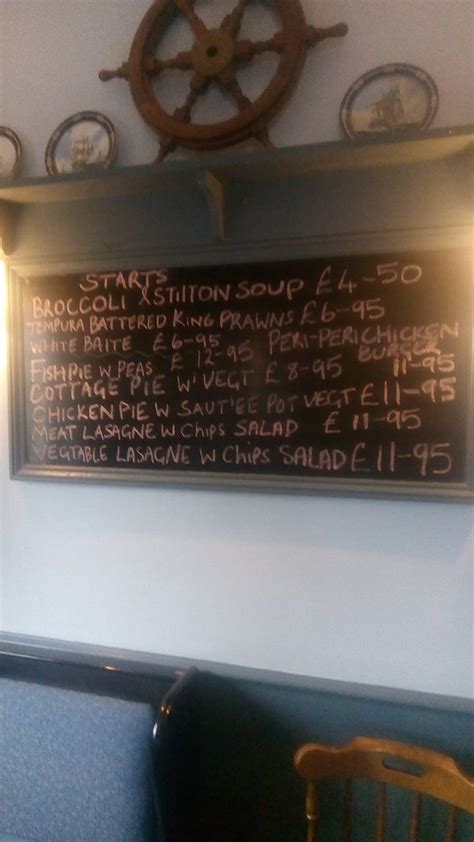 STARTS
BROCCOLI & STILTON SOUP £4-50
TEMPURA BATTERED KING PRAWNS £6-95
WHITE BAITE £6-95 PERI-PERI CHICKEN BURGER 11-95
FISHPIE W PEAS £ 12-95
COTTAGE PIE W' VEGT £8-95
CHICKEN PIE W SAUT'EE POT VEGT £11-95
MEAT LASAGNE W CHIPS SALAD £11-95
VEGTABLE LASAGNE W CHIPS SALAD £11-95